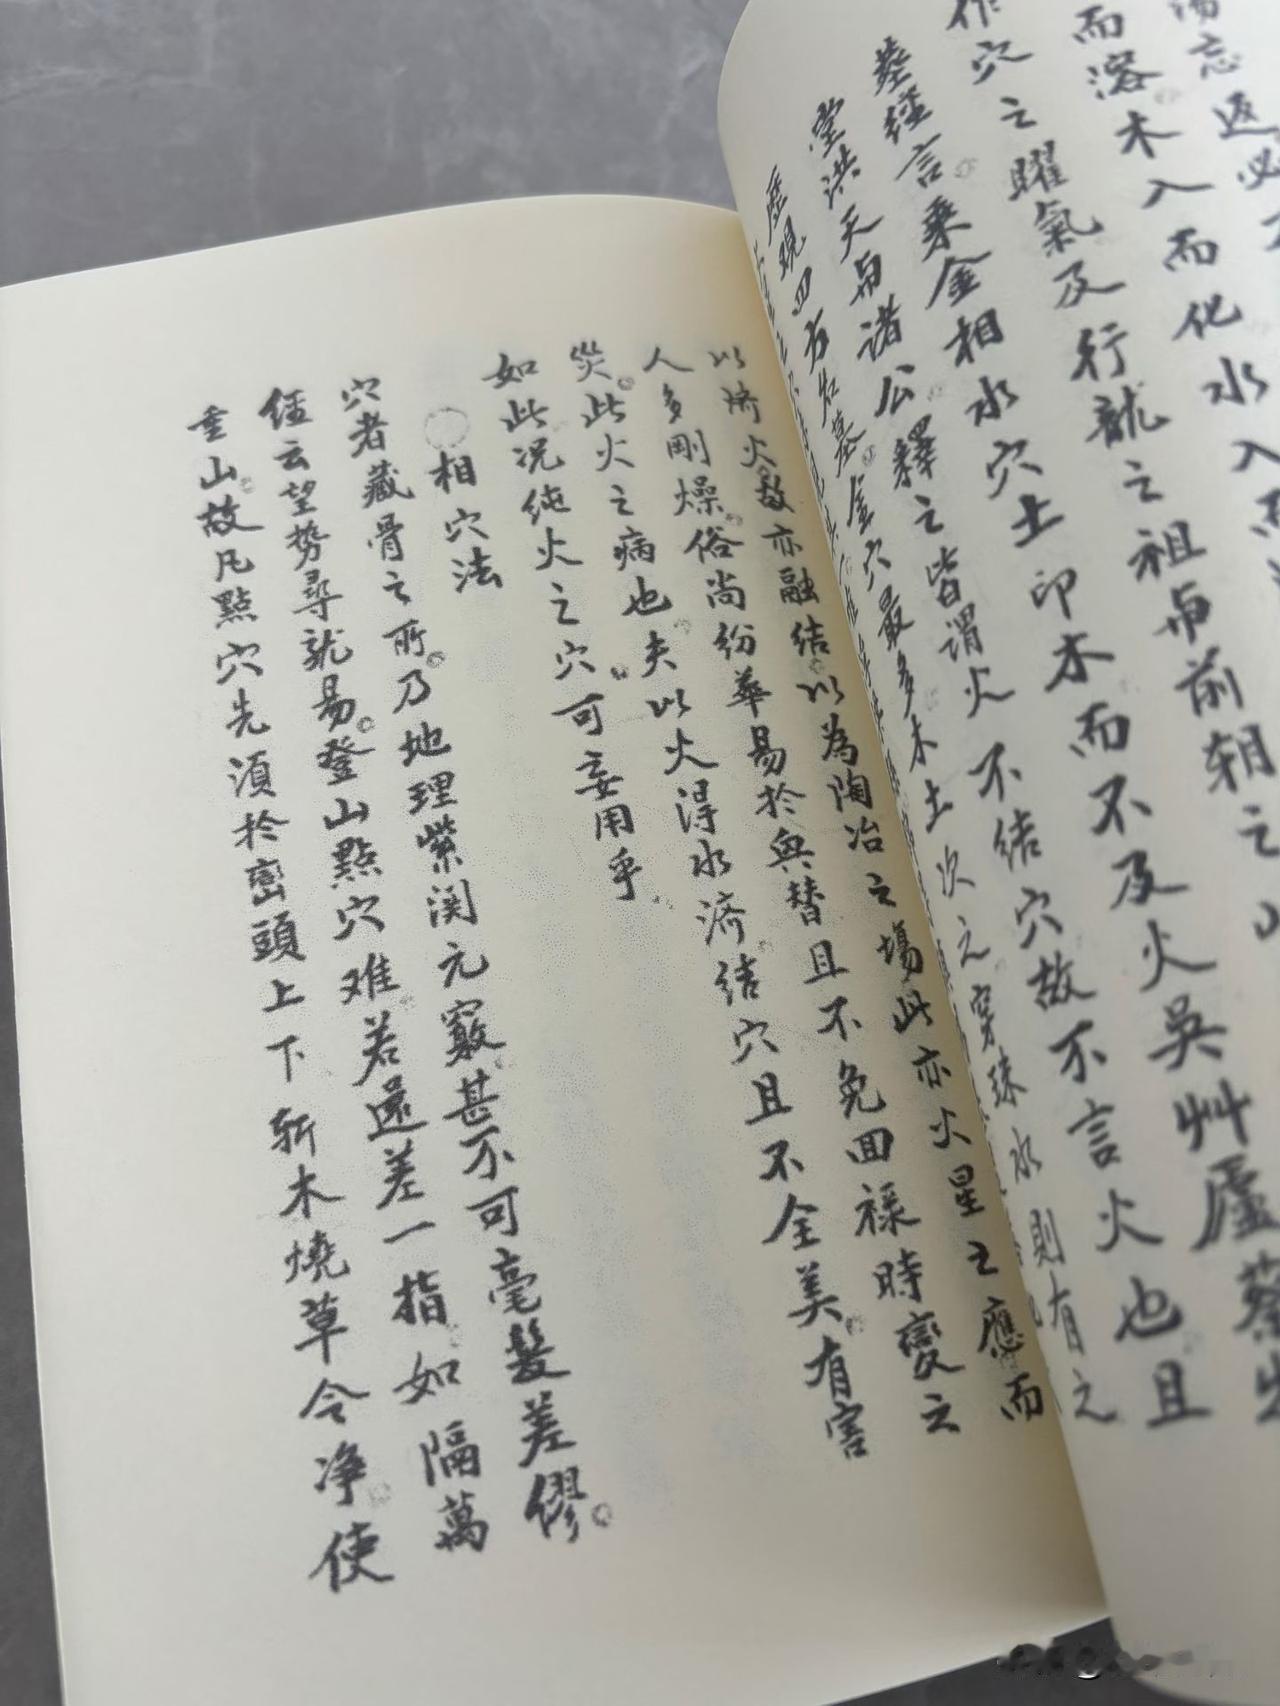 而溶木入而化水入而
作穴之曜氣及行龍之祖与前朝之山
葬經言乘金相水穴土印木而不及火吳艸廬蔡
堂洪天与諸公釋之皆謂火不結穴故不言火也且
歷現四方名墓金穴最多木土次之穿珠水則有之
以濟火故亦融結以為陶冶之場此亦火星之應而
人多剛燥俗尚紛華易於興替且不免回祿時變之
災此火之病也夫以火得水濟結穴且不全美有害
如此况純火之穴可妄用乎
相穴法
穴者藏骨之所乃地理紫関元竅甚不可毫髮差繆
經云望勢尋龍易登山點穴难若還差一指如隔萬
重山故凡點穴先須於巒頭上下斬木燒草令净使